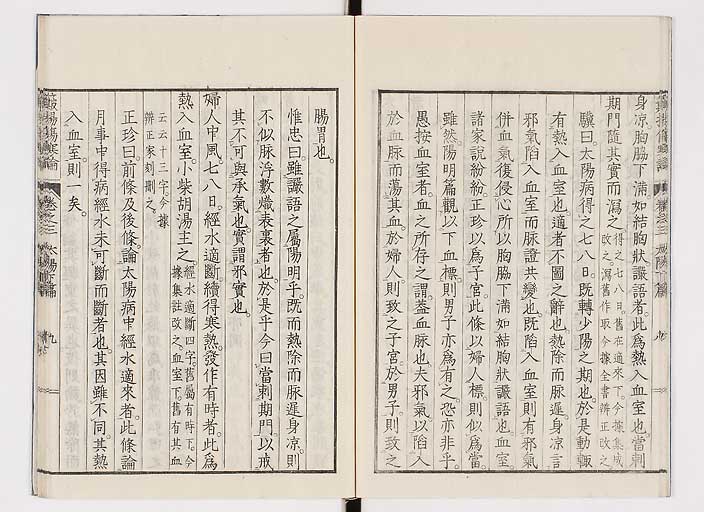 身凉胸脇下滿如結胸狀讝語者此爲熱入血室也當刺
期門隨其實而瀉之得之七八日舊在適來下今據集成
改之瀉舊作取今據全書辨正改之
驥曰太陽病得之七八日既轉少陽之期也於是動輙
有熱入血室也適者不圖之辭也熱除而脉遲身凉言
邪氣陷入血室而脉證共變也既陷入血室則有邪氣
併血氣復侵心所以胸脇下滿如結胸狀讝語也血室
諸家説紛紛正珍以爲子宮此條以婦人標則似爲當
雖然陽明篇觀以下血標則男子亦爲有之恐亦非乎
愚按血室者血之所存之謂蓋血脉也夫邪氣以陷入
於血脉而蕩其血於婦人則致之子宮於男子則致之
腸胃也
惟忠曰雖讝語之屬陽明乎既而熱除而脉遲身凉則
不似脉浮數熾表裏者也於是乎今曰當刺期門以戒
其不可與承氣也實謂邪實也
婦人中風七八日經水適斷續得寒熱發作有時者此爲
熱入血室小柴胡湯主之經水適斷四字舊屬有時下今
據集註改之血室下舊有其血
云云十三字今據
辨正家刻刪之
正珍曰前條及後條論太陽病中經水適來者此條論
月事中得病經水未可斷而斷者也其因雖不同其熱
入血室則一矣
卷之三 太陽下篇 九